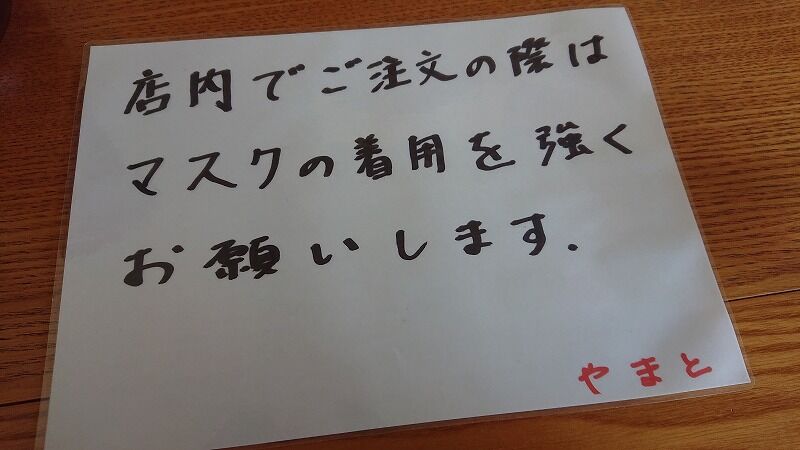 店内でご注文の際は
マスクの着用を強く
お願いします.
やまと